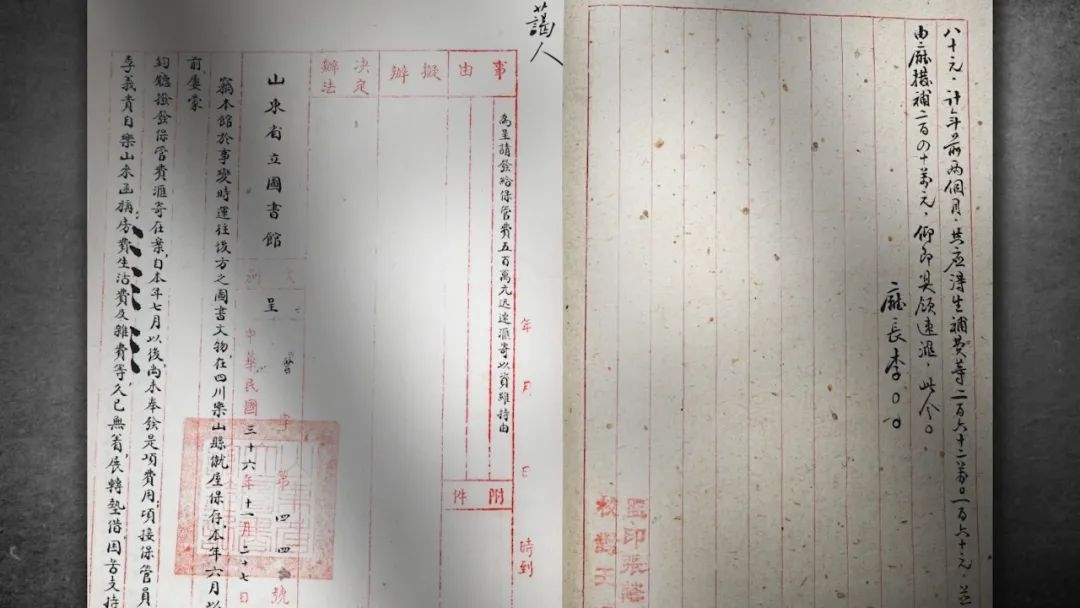 八十元。计年前两個月。共应淂生補費等二百六十二萬〇一百六十元。並
由廳撥補二百四十萬元。仰即具领速滙。此令。
廳長李〇〇
監印張
校對王
藹人
事由擬辦
決定辦法
為呈請發給保管費五百萬元迅速滙寄以資維持由
附件
年月日時到
山東省立圖書館
呈
字第四四號
中華民國三十六年十一月二十七日
竊本館於事變時運往後方之圖書文物，在四川樂山縣僦屋保存，本年六月以
前屢蒙
鈞廳撥發保管費滙寄在案，自本年七月以後尚未奉發是項費用；頃接保管員
李義貴自樂山來函稱房費生活費及雜費等，久已無着，展轉墊借，困苦支持